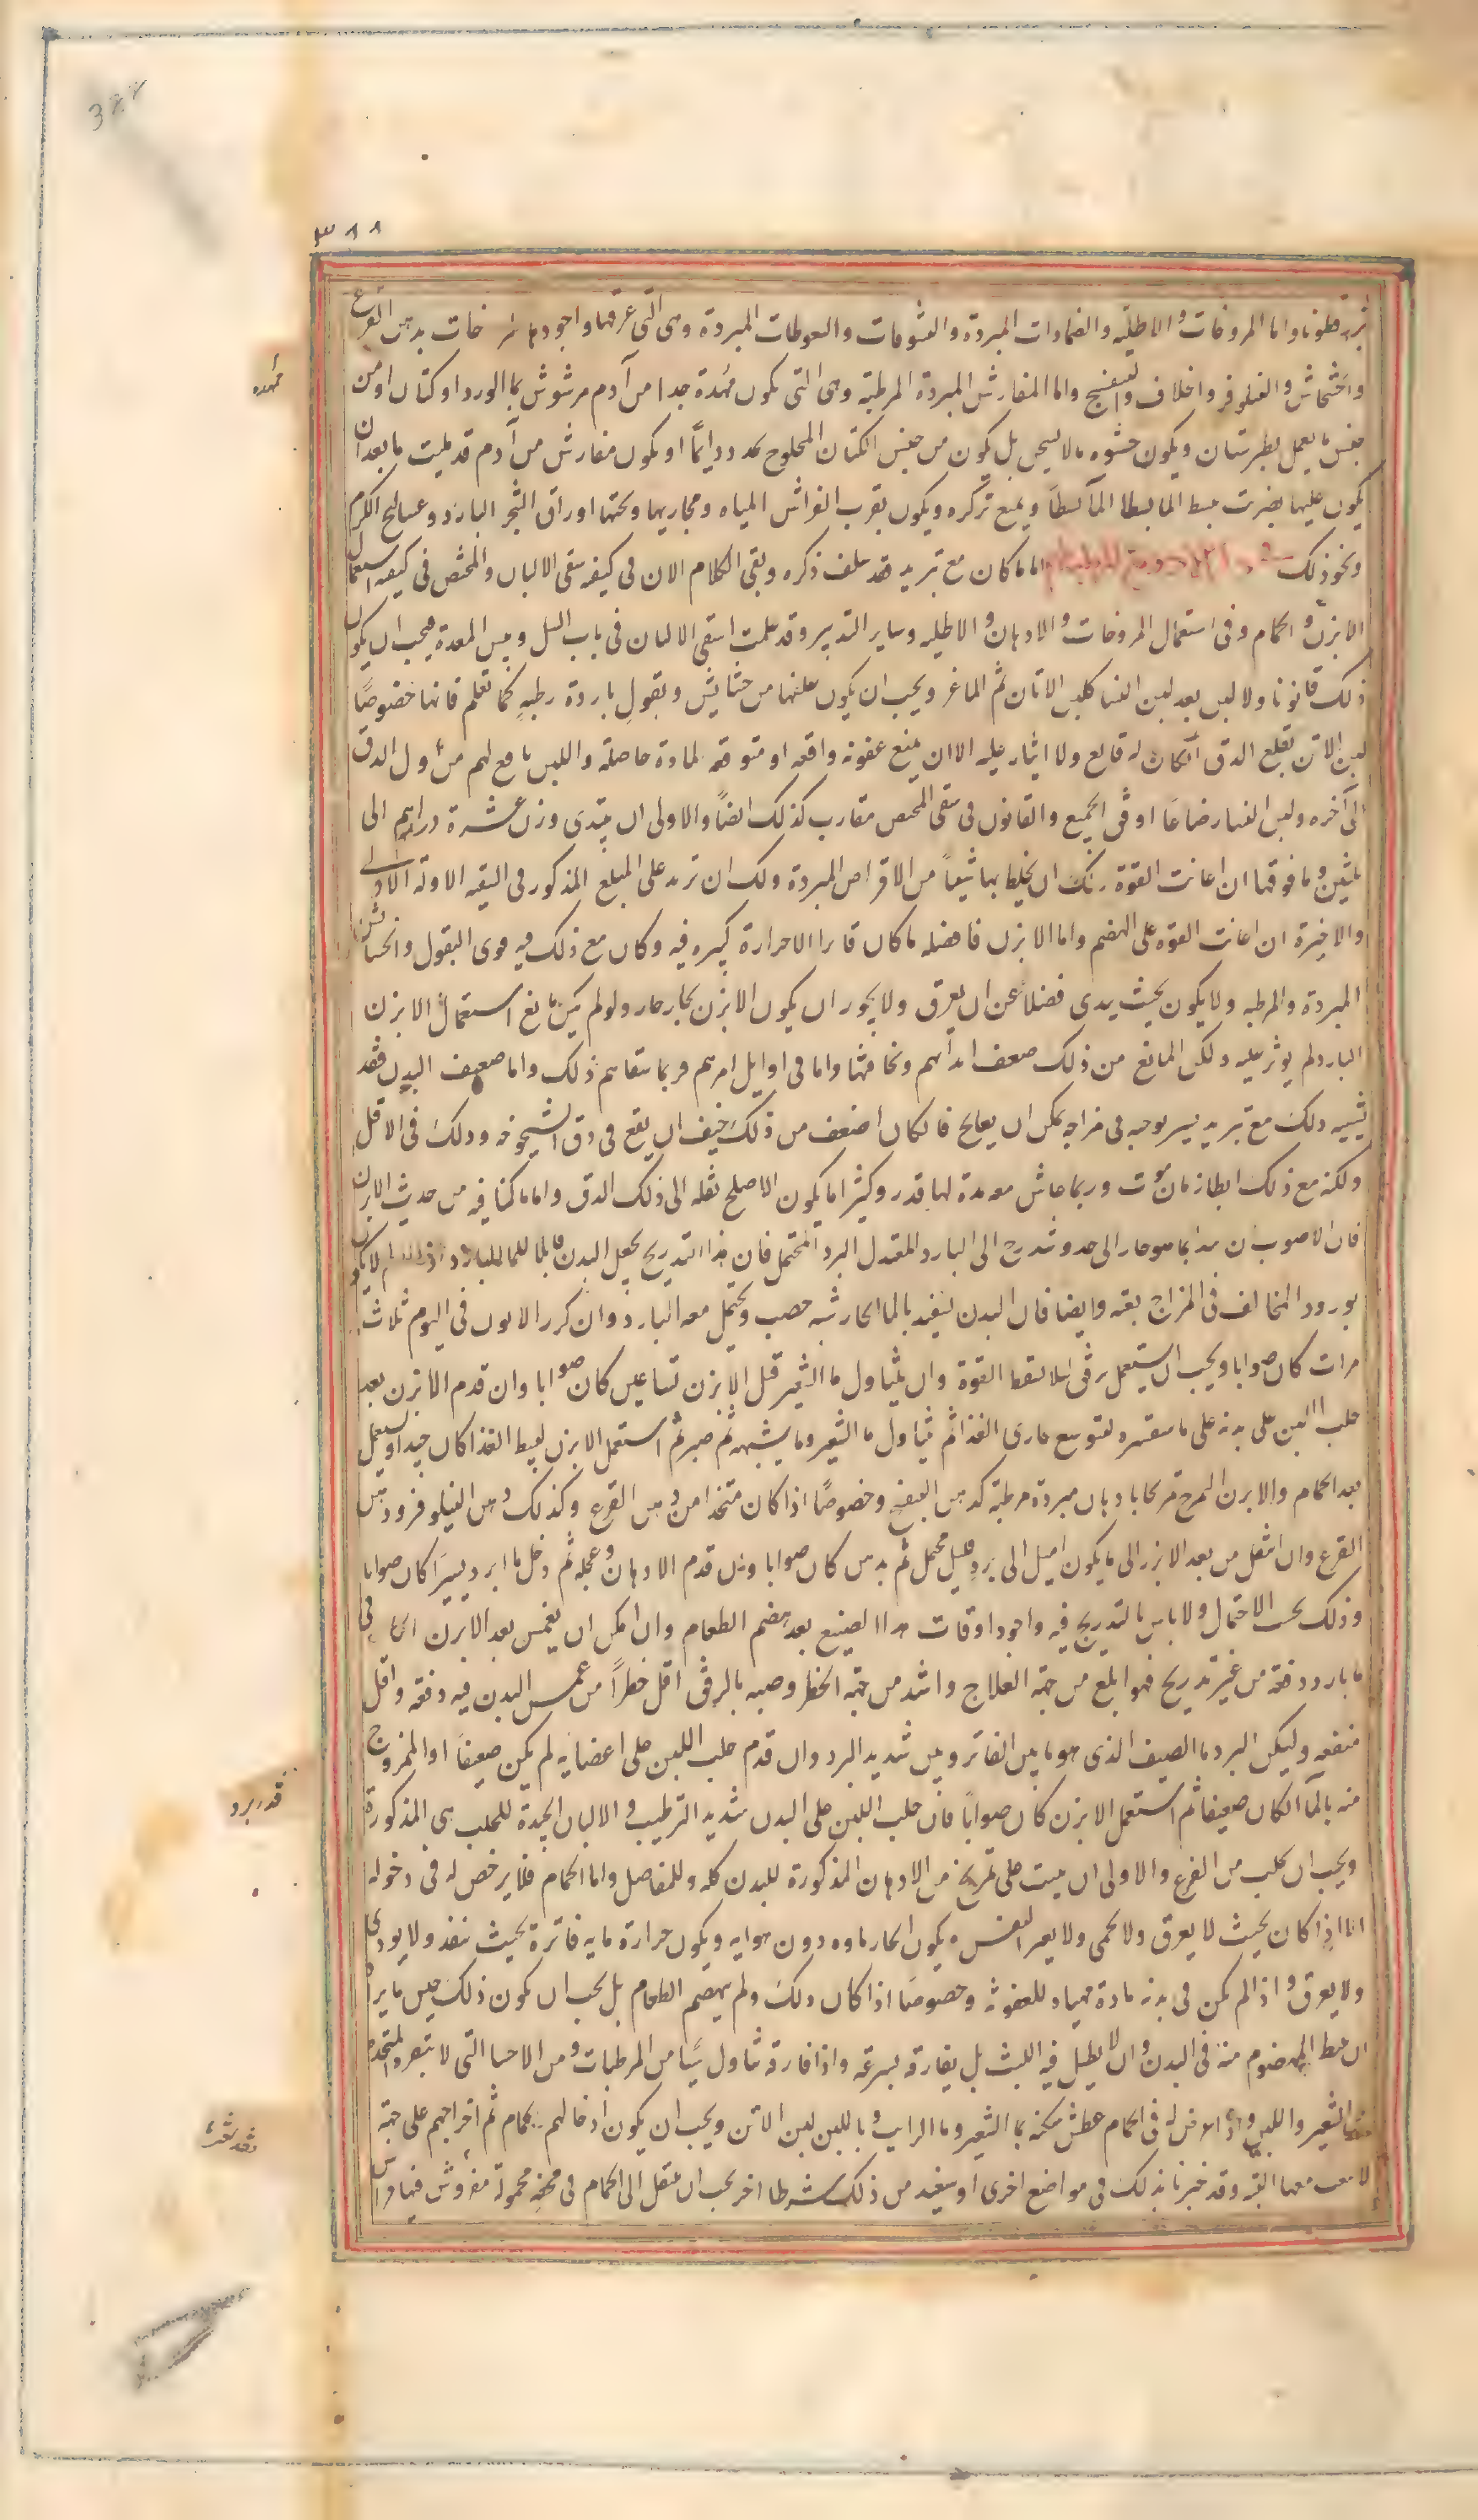 ٣٨٨
بزرقطونا واما المروخات والاطلية والضمادات المبردة والشمومات والسعوطات المبردة وهى التى عرفتها واجودها مروخات بدهن القرع
والخشخاش والنيلوفر والخلاف والبنفسج واما المفارش المبردة المرطبة وهى التى يكون ممهدة جدا من آدم مرشوش بماالورد او كتان او من
جنس ما يعمل بطبرستان ويكون حشوه مالا يسخن بل يكون من جنس الكتان المحلوج مجدد دايمًا او يكون مفارش من آدم قد مليت ما بعد ان
يكون عليها مضربة تبسط الما بسطا ويمنع تركزه ويكون بقرب الفراش المياه ومجاريها وتحتها اوراق الشجر البارد وعساليج الكرم
ونحو ذلك اما ما كان مع تبريد فقد سلف ذكره وبقى الكلام الان فى كيفيه سقى الالبان والمخيض فى كيفيه استعمال
الابزن والحمام وفى استعمال المروخات والادهان والاطليه وساير التدبير وقد علمت سقى الالبان فى باب السل ويبس المعدة فيجب ان يكون
ذلك قانونا ولا لبن بعد لبن النسا كلبن الاتان ثم الماعز ويجب ان يكون علفها من حشايش وبقول باردة رطبه كما تعلم فانها خصوصًا
لبن الاتن تقلع الدق ان كان له قالع ولا ايثار عليه الا ان يمنع عفونه واقعه او متوقعه لمادة حاصلة واللبن نافع لهم من اول الدق
الى آخره ولبن النسا رضاعًا اوفق الجميع والقانون فى سقى المخيض مقارب كذلك ايضًا والاولى ان يبتدى وزن عشرة دراهم الى
ثلثين وما فوقها ان اعانت القوة ولك ان تخلط بها شيئًا من الاقراص المبردة ولك ان تزيد على المبلغ المذكور فى السقيه الاولة الادنى
والاخيرة ان اعانت القوه على الهضم واما الابزن فافضله ما كان فاترا الا حرارة كثيره فيه وكان مع ذلك فيه قوى البقول والحشايش
المبردة والمرطبه ولا يكون بحيث يندى فضلا عن ان يعرق ولا يجوز ان يكون الابزن بخار حار ولو لم يكن مانع استعمال الابزن
البارد لم يوثر عليه ولكن المانع من ذلك ضعف ابدانهم ونحافتها واما فى اوايل امرهم فربما شفاهم ذلك واما ضعيف البدن فقد
يشبيه ذلك مع تبريد يسير يوجبه فى مزاجه يمكن ان يعالج فان كان اضعف من ذلك خيف ان يقع فى دق الشيخوخه وذلك فى الاقل
ولكنه مع ذلك ابطا زمان موت وربما عاش معه مدة لها قدر وكثيرا ما يكون الاصلح نقله الى ذلك الدق واما ما كنا فيه من حديث الابزن
فان الاصوب ان يبدا بما هو حار الى حد وتدرج الى البارد المعتدل البرد المحتمل فان هذا التدريج يجعل البدن قابلا للما البارد
بورود المخالف فى المزاج بغته وايضا فان البدن يستفيد بالما الحار شبه خصب ويحتمل معه البارد وان كرر الابزن فى اليوم ثلاث
مرات كان صوابا ويجب ان يستعمل برفق لئلا تسقط القوة وان يتناول ما الشعير قبل الابزن بساعتين كان صوابا وان قدم الابزن بعد
حلب اللبن على بدنه على ما سنفسره لتوسيع مجارى الغذا ثم يتناول ما الشعير وما يشبهه ثم صبر ثم استعمل الابزن لبسط الغذا كان جيدا ويستعمل
بعد الحمام والابزن التمريخ تمريخا بادهان مبردة مرطبة كدهن البنفسج وخصوصًا اذا كان متخذا من دهن القرع وكذلك دهن النيلوفر ودهن
القرع وان انتقل من بعد الابزن الى ما يكون اميل الى برد قليل محتمل ثم يدهن كان صوابا وان قدم الادهان وعجله ثم دخل ما ابرد يسيرًا كان صوابا
وذلك بحسب الاحتمال ولا باس بالتدريج فيه واجود اوقات هذا الصنيع بعد هضم الطعام وان امكن ان يغمس بعد الابزن الحار فى
ما بارد دفعة من غير تدريج فهو ابلغ من جهة العلاج واشد من جهة الخطر وصبه بالرفق اقل خطرًا من غمس البدن فيه دفعه واقل
منفعه وليكن البرد ما الصيف الذى هو ما بين الفاتر وبين شديد البرد وان قدم حلب اللبن على اعضايه لم يكن ضعيفا او الممزوج
منه بالما ان كان ضعيفا ثم استعمل الابزن كان صوابًا فان حلب اللبن على البدن شديد الترطيب والالبان الجيدة للحلب هى المذكورة
ويجب ان يحلب من الضرع والاولى ان يبيت على تمريخ من الادهان المذكورة للبدن كله وللمفاصل واما الحمام فلا يرخص له فى دخوله
الا اذا كان بحيث لا يعرق ولا يحمى ولا يغير النفس ويكون الحار ماوه دون هوايه ويكون حرارة مايه فاترة بحيث ينفذ ولا يوذى
ولا يعرق واذا لم يكن فى بدنه مادة مهياة للعفونة وخصوصًا اذا كان ذلك ولم يهضم الطعام بل يجب ان يكون ذلك حين ما يراد
ان يبسط المهضوم منه فى البدن وان لا يطيل فيه اللبث بل يفارقه بسرعة واذا فارقه تناول شيًا من المرطبات ومن الاحسا التى لا تبعد والمتخذة
من الشعير واللبن واذا عرض له فى الحمام عطش سكنه بما الشعير وما الرايب وباللبن لبن الاتن ويجب ان يكون ادخالهم الحمام ثم اخراجهم على جهة
لا تعب معها البته وقد خبرنا بذلك فى مواضع اخرى او سنفيد من ذلك شرطا اخر يجب ان ينقل الى الحمام فى محفة محمولة مفروش فيها فراش
ممهده
قدر برد